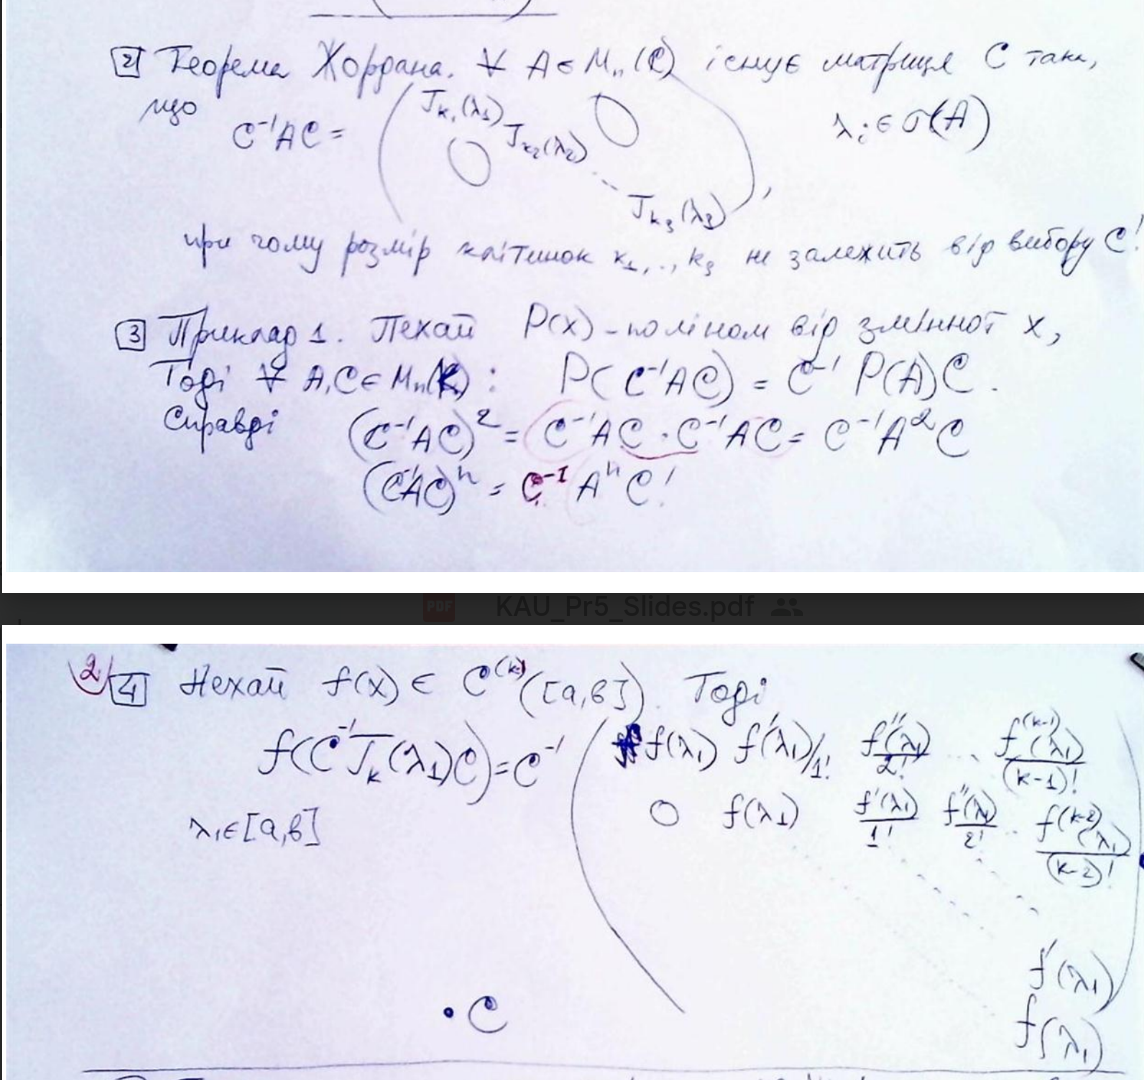 2 Теорема Жордана. ∀ A ∈ Mₙ(C) існує матриця C така,
що C⁻¹AC = ( J_k₁(λ₁) J_k₂(λ₂) ... J_k₃(λ₃) ), λᵢ ∈ σ(A)
при чому розмір клітинок k₁,..,k₃ не залежить від вибору C!
3 Приклад 1. Нехай P(x) - поліном від змінної x,
Тоді ∀ A,C ∈ Mₙ(K): P(C⁻¹AC) = C⁻¹ P(A)C.
Справді (C⁻¹AC)² = C⁻¹AC · C⁻¹AC = C⁻¹A²C
(C⁻¹AC)ⁿ = C⁻¹ AⁿC!
PDF KAU_Pr5_Slides.pdf
2 4 Нехай f(x) ∈ C⁽ᵏ⁾([a,b]). Тоді
f(C⁻¹J_k(λ₁)C) = C⁻¹ ( f(λ₁) f'(λ₁)/1! f''(λ₁)/2! ... f⁽ᵏ⁻¹⁾(λ₁)/(k-1)!
λ₁ ∈ [a,b] 0 f(λ₁) f'(λ₁)/1! f''(λ₁)/2! ... f⁽ᵏ⁻²⁾(λ₁)/(k-2)!
f'(λ₁)
f(λ₁) )
· C